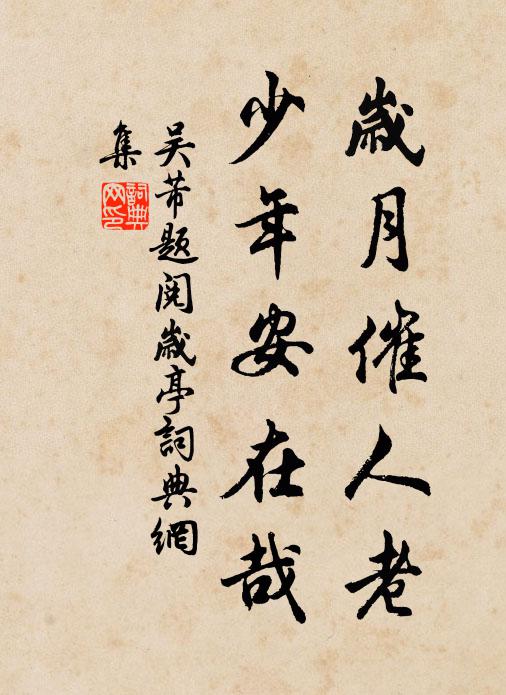 歲月催人老
少年安在哉
吳芾題閱歲亭詞典網
集
詞典
網印